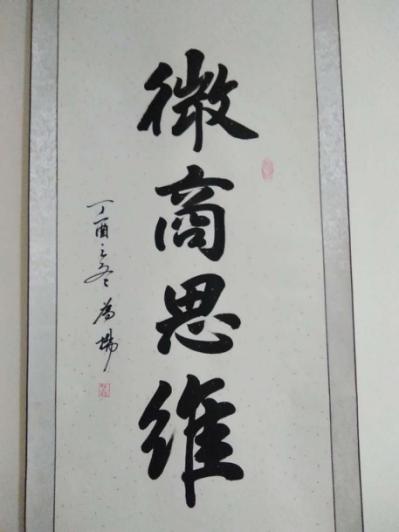 微商思维
丁酉之冬